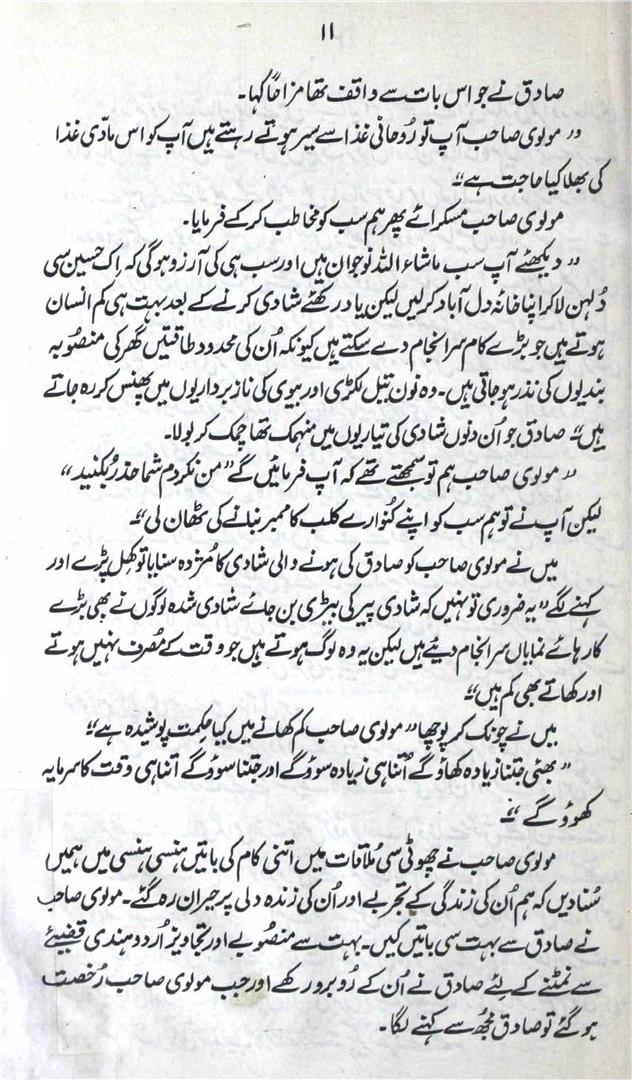 ۱۱
صادق نے جو اس بات سے واقف تھا مزاحاً کہا۔
" مولوی صاحب آپ تو رُوحانی غذا سے سیر ہوتے رہتے ہیں آپ کو اس مادّی غذا
کی بھلا کیا حاجت ہے"
مولوی صاحب مسکرائے پھر ہم سب کو مخاطب کر کے فرمایا۔
" دیکھئے آپ سب ماشاء اللہ نوجوان ہیں اور سب ہی کی آرزو ہوگی کہ اِک حسین سی
دُلہن لا کر اپنا خانۂ دل آباد کرلیں لیکن یاد رکھئے شادی کرنے کے بعد بہت ہی کم انسان
ہوتے ہیں جو بڑے کام سر انجام دے سکتے ہیں کیونکہ اُن کی محدود طاقتیں گھر کی منصُوبہ
بندیوں کی نذر ہو جاتی ہیں۔ وہ نون تیل لکڑی اور بیوی کی ناز برداریوں میں پھنس کر رہ جاتے
ہیں" صادق جو اُن دنوں شادی کی تیاریوں میں منہمک تھا چمک کر بولا۔
" مولوی صاحب ہم تو سمجھتے تھے کہ آپ فرمائیں گے "من نکردم شما حذر بُکنید"
لیکن آپ نے تو ہم سب کو اپنے کُنوارے کلب کا ممبر بنانے کی ٹھان لی"۔
میں نے مولوی صاحب کو صادق کی ہونے والی شادی کا مُژدہ سنایا تو کھِل پڑے اور
کہنے لگے "یہ ضروری تو نہیں کہ شادی پیر کی بیڑی بن جائے شادی شدہ لوگوں نے بھی بڑے
کارہائے نمایاں سر انجام دیئے ہیں لیکن یہ وہ لوگ ہوتے ہیں جو وقت کے مُصرف نہیں ہوتے
اور کھاتے بھی کم ہیں"
میں نے چونک کر پوچھا "مولوی صاحب کم کھانے میں کیا حِکمت پوشیدہ ہے"
" بھئی جتنا زیادہ کھاؤ گے اُتنا ہی زیادہ سوؤ گے اور جتنا سوؤ گے اُتنا ہی وقت کا سرمایہ
کھوؤ گے"۔
مولوی صاحب نے چھوٹی سی مُلاقات میں اتنی کام کی باتیں ہنسی ہنسی میں ہمیں
سُنا دیں کہ ہم اُن کی زندگی کے تجربے اور اُن کی زندہ دلی پر حیران رہ گئے۔ مولوی صاحب
نے صادق سے بہت سی باتیں کیں۔ بہت سے منصُوبے اور تجاویز اُردو ہندی قضیئے
سے نمٹنے کے لِئے صادق نے اُن کے رُوبرو رکھے اور جب مولوی صاحب رُخصت
ہو گئے تو صادق مُجھ سے کہنے لگا۔